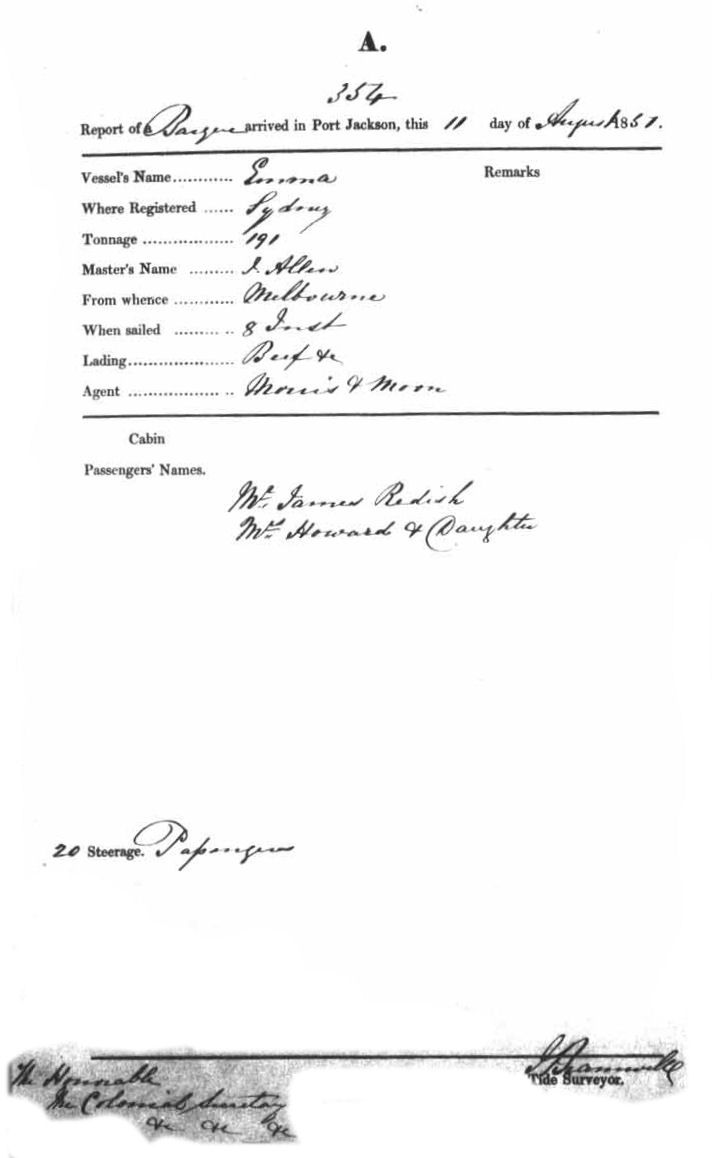 A.
354
Report of a Barque arrived in Port Jackson, this 11 day of August 1851.
Vessel's Name............ Emma
Remarks
Where Registered ...... Sydney
Tonnage .................. 191
Master's Name ......... J. Allen
From whence ............ Melbourne
When sailed ......... .. 8 Inst
Lading..................... Beef &c
Agent .................. .. Morris & Moon
Cabin
Passengers' Names.
Mr. James Redish
Mrs Howard & Daughter
20 Steerage. Passengers
Tide Surveyor.
The Honorable
The Colonial Secretary
&c &c &c